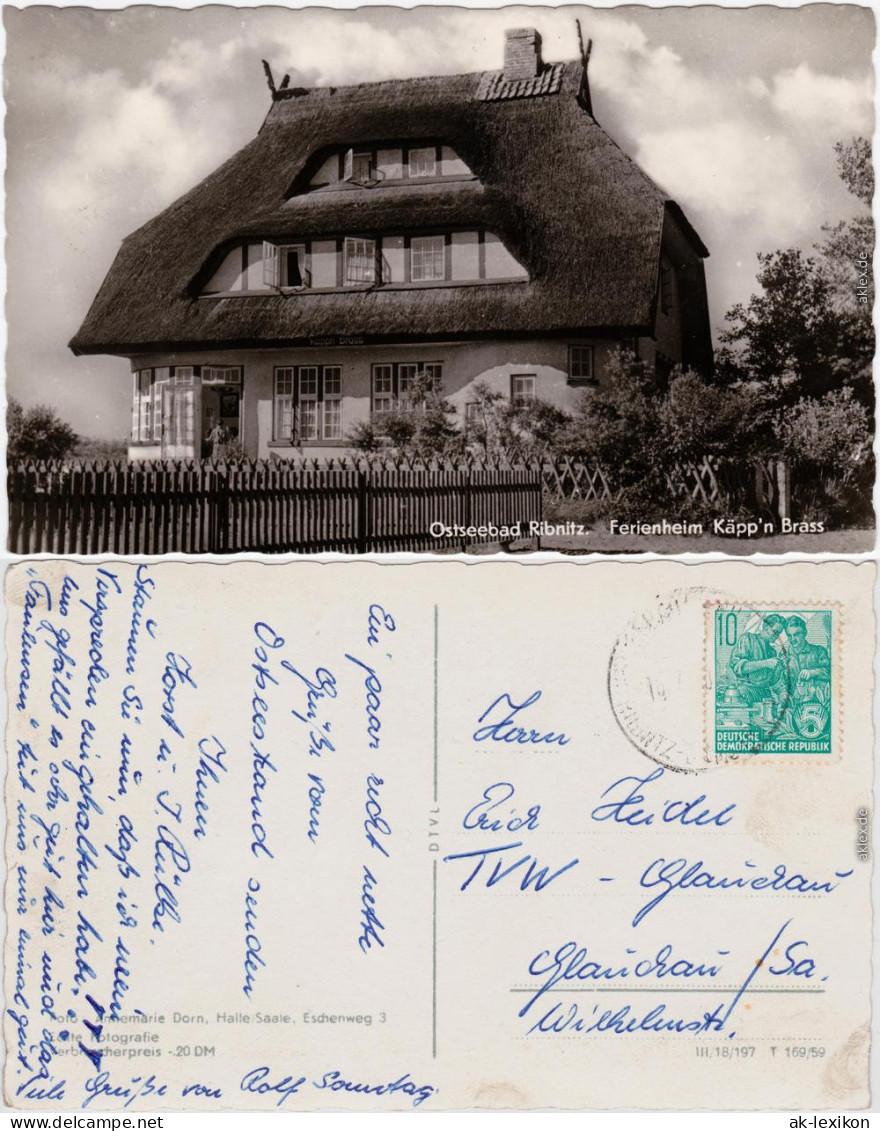 Käpp'n Brass
Ostseebad Ribnitz. Ferienheim Käpp'n Brass
aklex.de
Ein paar recht nette
Grüße vom
Ostseestrand senden
Ihnen
Horst u. I.
Staunen Sie nun, daß ich mein
Versprechen eingehalten habe,
Uns gefällt es sehr gut hier und das
"Faulensen" tut uns nur einmal gut.
Viele Grüße von Rolf Samstag.
Foto: Annemarie Dorn, Halle/Saale, Eschenweg 3
Echte Fotografie
Verbraucherpreis -.20 DM
DTVL
10
5
DEUTSCHE
DEMOKRATISCHE REPUBLIK
Herrn
Erich Heidel
TVW - Glauchau
Glauchau/Sa.
Wilhelmstr.
III/18/197 T 169/59
aklex.de
ak-lexikon